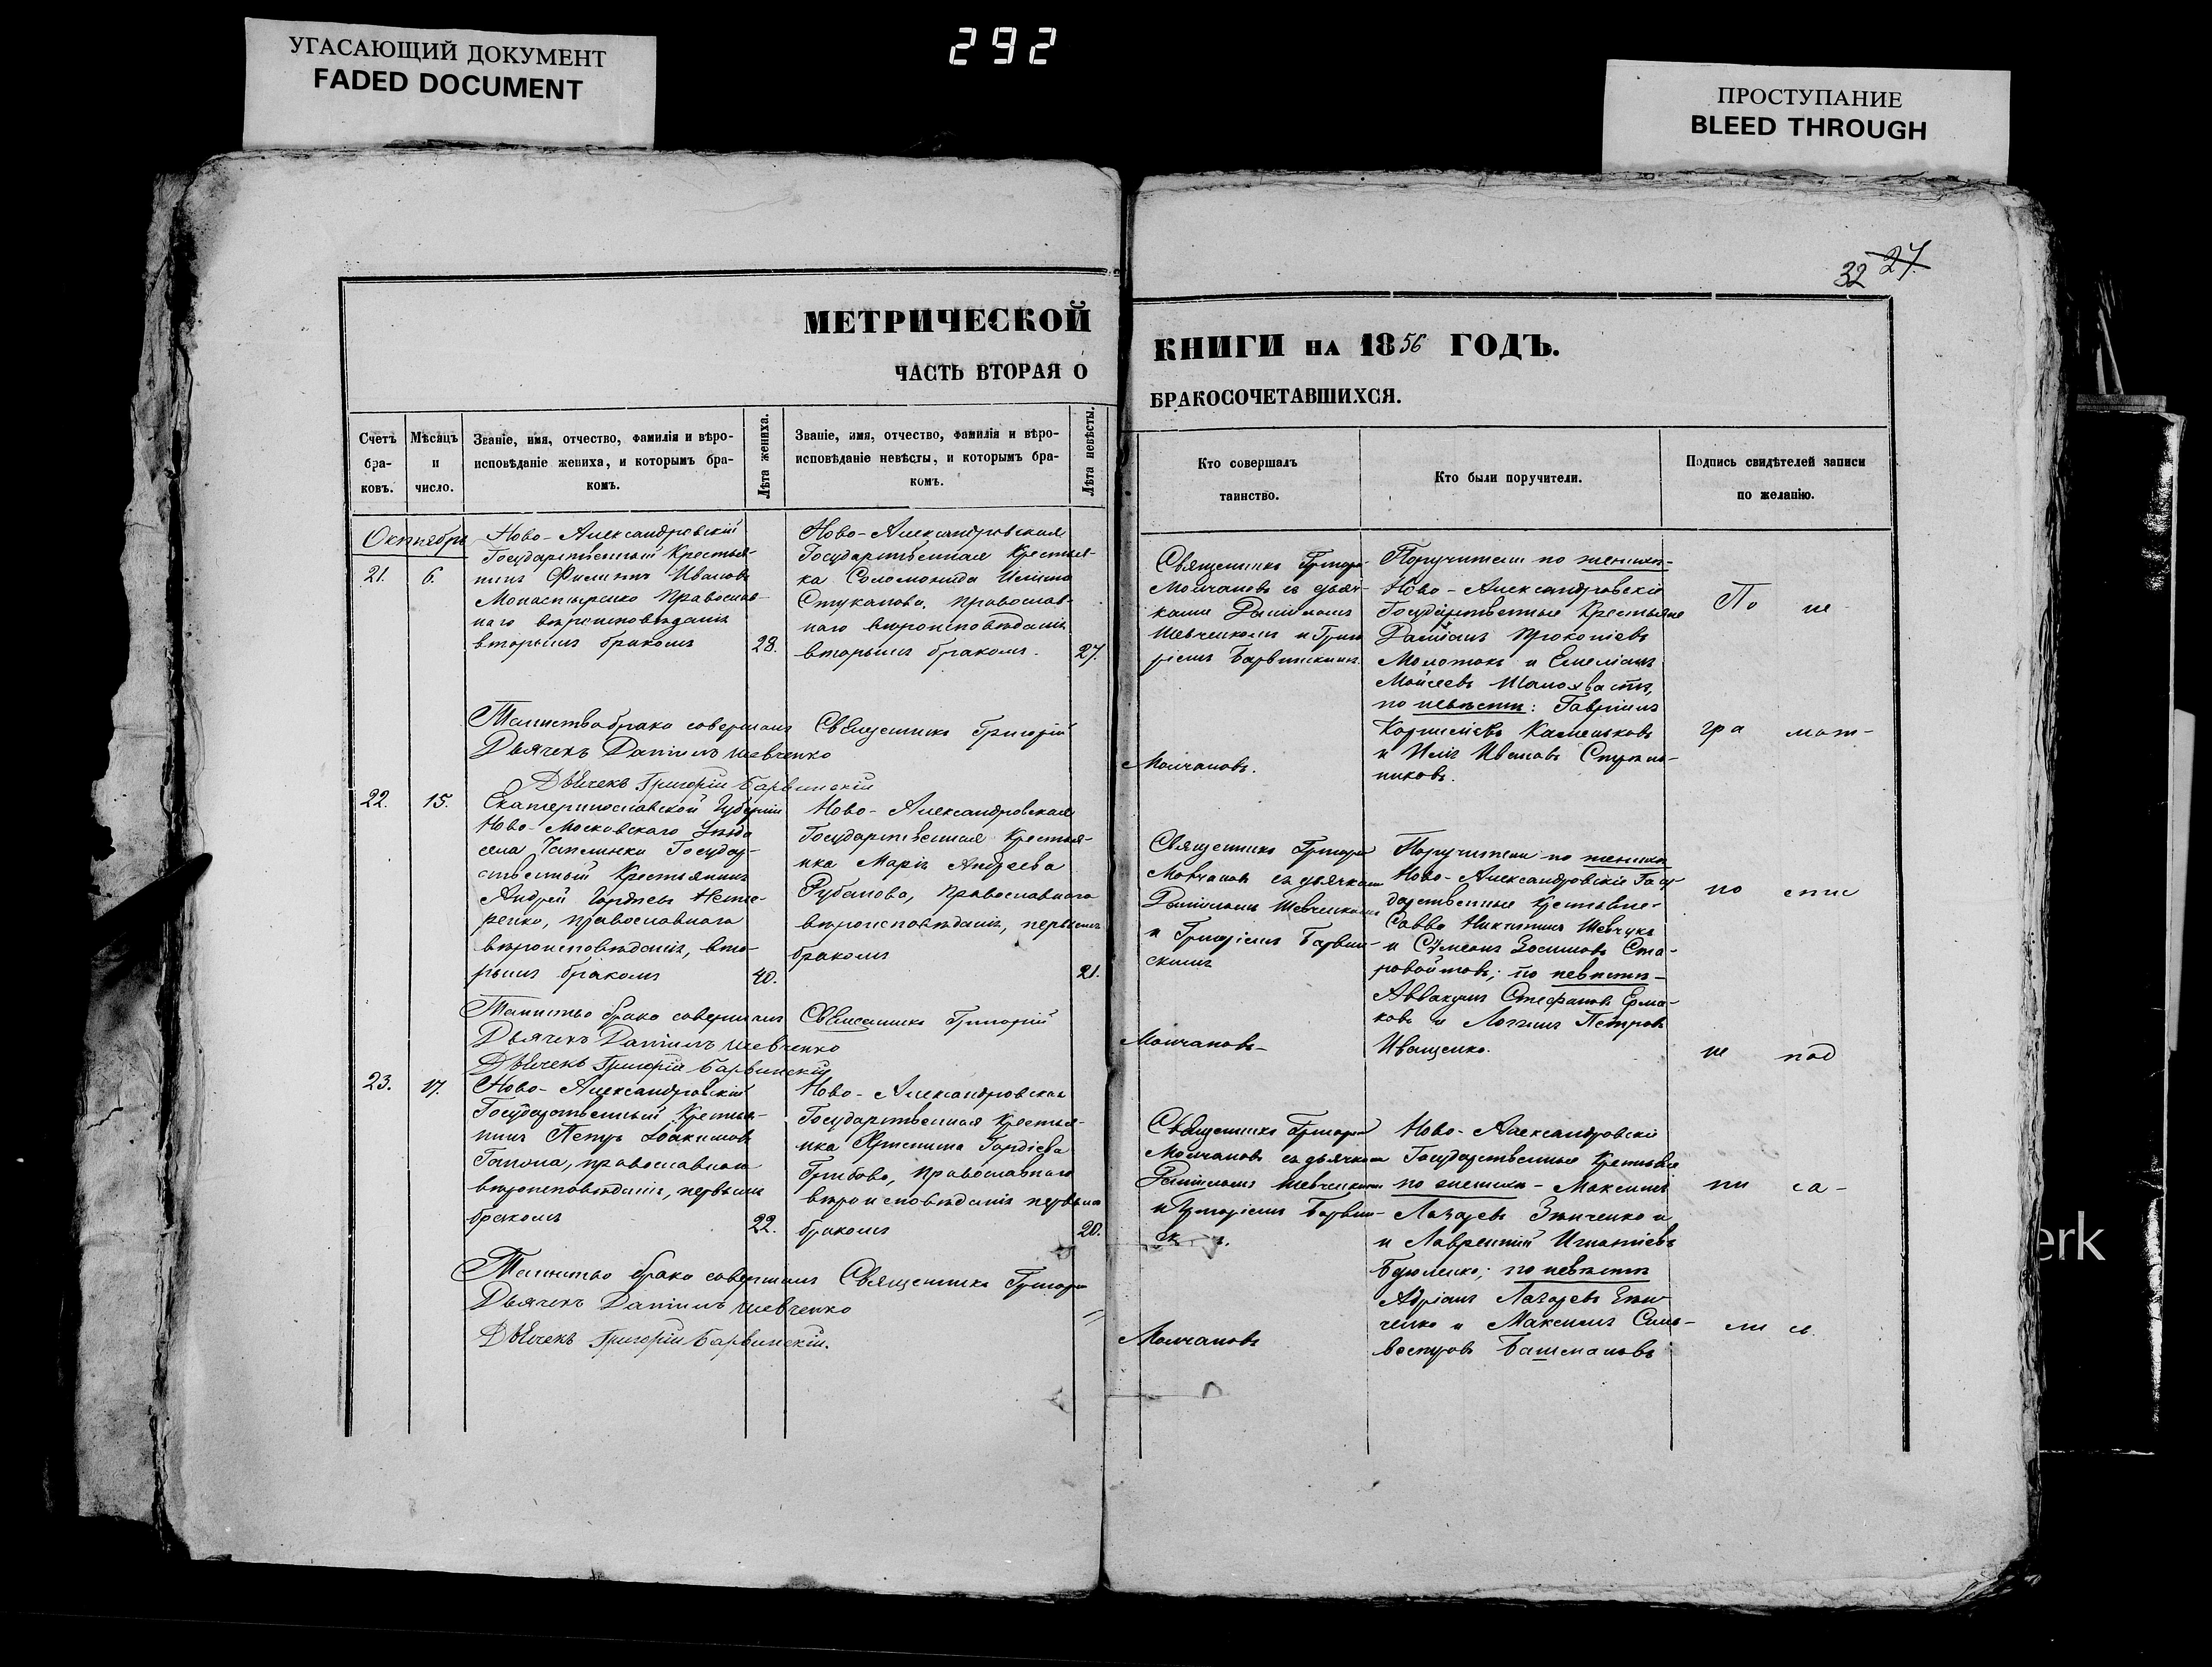 УГАСАЮЩИЙ ДОКУМЕНТ
FADED DOCUMENT
292
ПРОСТУПАНИЕ
BLEED THROUGH
32 27.
МЕТРИЧЕСКОЙ
ЧАСТЬ ВТОРАЯ О
КНИГИ на 1856 ГОДЪ.
БРАКОСОЧЕТАВШИХСЯ.
Счетъ
бра-
ковъ.
Мѣсяцъ
и
число.
Званіе, имя, отчество, фамилія и вѣро-
исповѣданіе жениха, и которымъ бра-
комъ.
Лѣта жениха.
Званіе, имя, отчество, фамилія и вѣро-
исповѣданіе невѣсты, и которымъ бра-
комъ.
Лѣта невѣсты.
Кто совершалъ
таинство.
Кто были поручители.
Подпись свидѣтелей записи
по желанію.
Октябрь
21.
6.
Ново-Александровскій
Государственный Крестья-
нинъ Филиппъ Ивановъ
Монастырско Православ-
наго вѣроисповѣданія
вторымъ бракомъ
28.
Ново-Александровская
Государственная Крестья-
ка Соломонида Ильина
Стуканова, православ-
наго вѣроисповѣданія
вторымъ бракомъ.
27.
Священникъ Григорі
Молчановъ съ дьяч-
ками Даніиломъ
Шевченкомъ и Григо
ріемъ Барвинскимъ.
Поручители по женихѣ-
Ново-Александровскіе
Государственные Крестьяне
Даміанъ Прокопіевъ
Молотокъ и Емеліанъ
Мойсеевъ Шалохвастъ,
по невѣстѣ: Гавріилъ
Корниліевъ Каменьковъ
и Илія Ивановъ
никовъ.
По не-
гра мот-
Таинство брака совершалъ Священникъ Григорій
Молчановъ.
Дьячекъ Даніилъ Шевченко
Дьячекъ Григорій Барвинскій
22.
15.
Екатеринославской Губерніи
Ново-Московскаго Уѣзда
села Чаплинки Государ-
ственный Крестьянинъ
Андрей Гордѣевъ Несте-
ренко, православнаго
вѣроисповѣданія, вто-
рымъ бракомъ
40.
Ново-Александровская
Государственная Крестья-
нка Марія Андреева
Рубанова, православнаго
вѣроисповѣданія, первымъ
бракомъ
21.
Священникъ Григорі
Молчановъ съ дьячками
Даніиломъ Шевченкомъ
и Григоріемъ Барвин-
скимъ
Поручители по женихѣ
Ново-Александровскіе Госу-
дарственные Крестьяне-
Савва Никитинъ Шевчукъ
и Сѵмеонъ Зосимовъ Ста-
ровойтовъ; по невѣстѣ-
Аввакумъ Стефановъ Ерма-
ковъ и Логгинъ Петровъ
Иващенко.
по спис
не под
Таинство брака совершалъ Священникъ Григорій
Молчановъ-
Дьячекъ Даніилъ Шевченко
Дьячекъ Григорій Барвинскій
23.
17.
Ново-Александровскій
Государственный Крестья-
нинъ Петръ Іоакимовъ
Гапона, православнаго
вѣроисповѣданія, первымъ
бракомъ
22.
Ново-Александровская
Государственная Крестья-
нка Христина Гордіева
Грибова, Православнаго
вѣроисповѣданія первымъ
бракомъ
20.
Священникъ Григорі
Молчановъ съ дьячками
Даніиломъ Шевченкомъ
и Григоріемъ Барвин-
Ново-Александровскіе
Государственные Крестьяне
по женихѣ - Максимъ
Лазаревъ Зѣнченко и
и Лаврентій Игнатіевъ
по невѣстѣ
Адріанъ Лазаревъ Зѣн-
ченко и Максимъ Силь-
вестровъ Башмановъ
пи са-
ли сь.
Таинство брака совершалъ Священникъ Григорі
Молчановъ
Дьячекъ Даніилъ Шевченко
Дьячекъ Григорій Барвинскій.
erk